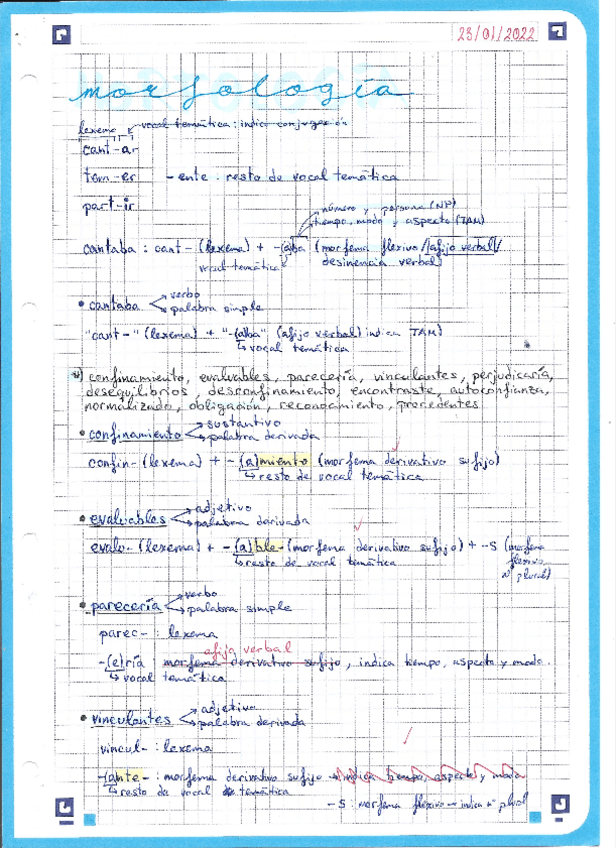 23/01/2022
morfología
lexema vocal temática: indica conjugación
cant-ar
tem-er -ente: resto de vocal temática
part-ir
número y persona (NP)
tiempo, modo y aspecto (TAM)
cantaba: cant- (lexema) + -(a)ba (morfema flexivo/afijo verbal/
vocal temática desinencia verbal)
• cantaba verbo
palabra simple
"cant-" (lexema) + "-(a)ba" (afijo verbal) indica TAM)
vocal temática
confinamiento, evaluables, parecería, vinculantes, perjudicaría,
desequilibrios, desconfinamiento, encontraste, autoconfianza,
normalizado, obligación, reconocimiento, precedentes
• confinamiento sustantivo
palabra derivada
confin- (lexema) + -(a)miento (morfema derivativo sufijo)
resto de vocal temática
• evaluables adjetivo
palabra derivada
evalu- (lexema) + -(a)ble- (morfema derivativo sufijo) + -s (morfema
resto de vocal temática flexivo
plural)
• parecería verbo
palabra simple
parec-: lexema
afijo verbal
-(e)ría morfema derivativo sufijo, indica tiempo, aspecto y modo.
vocal temática
• vinculantes adjetivo
palabra derivada
vincul-: lexema
-(a)nte-: morfema derivativo sufijo indica tiempo, aspecto y modo
resto de vocal temática
-s: morfema flexivo indica nº plural